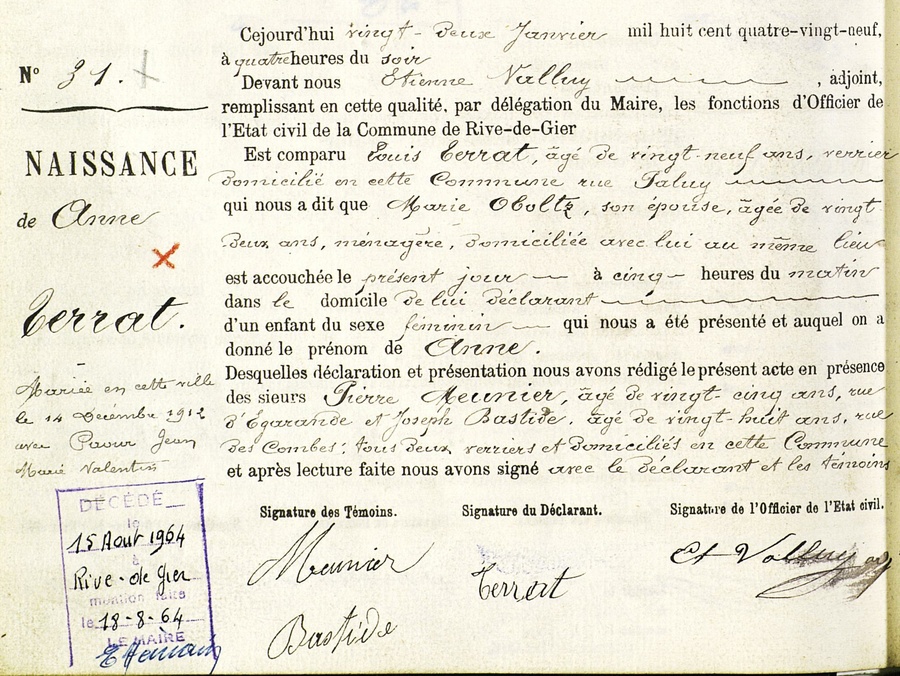 Nº 31.
NAISSANCE
de Anne
Terrat.
Mariée en cette ville
le 14 Décembre 1912
avec Jean
Marie Valentin
DÉCÉDÉ
le
15 Août 1964
à
Rive-de-Gier
mention faite
le 18-8-64
LE MAIRE
Cejourd'hui vingt-deux Janvier mil huit cent quatre-vingt-neuf,
à quatre heures du soir
Devant nous Etienne Valluy, adjoint,
remplissant en cette qualité, par délégation du Maire, les fonctions d'Officier de
l'Etat civil de la Commune de Rive-de-Gier
Est comparu Louis Terrat, âgé de vingt-neuf ans, verrier
domicilié en cette Commune rue Paluy
qui nous a dit que Marie Oboltz, son épouse, âgée de vingt
deux ans, ménagère, domiciliée avec lui au même lieu
est accouchée le présent jour à cinq heures du matin
dans le domicile de lui déclarant
d'un enfant du sexe féminin qui nous a été présenté et auquel on a
donné le prénom de Anne.
Desquelles déclaration et présentation nous avons rédigé le présent acte en présence
des sieurs Pierre Meunier, âgé de vingt-cinq ans, rue
d'Egarande et Joseph Bastide, âgé de vingt-huit ans, rue
des Combes; tous deux verriers et domiciliés en cette Commune
et après lecture faite nous avons signé avec le déclarant et les témoins
Signature des Témoins. Signature du Déclarant. Signature de l'Officier de l'Etat civil.
Meunier Terrat Et Valluy
Bastide